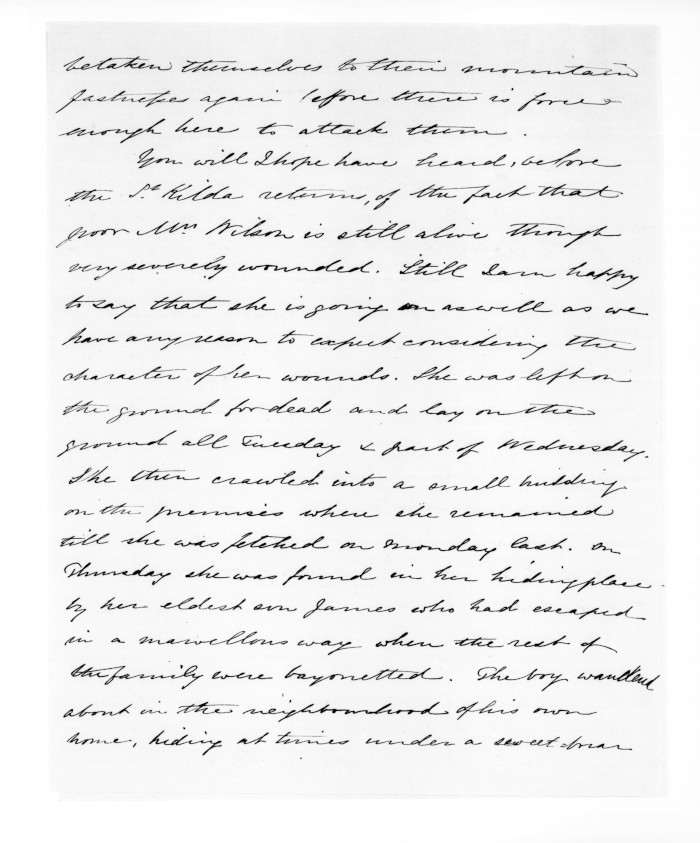 betaken themselves to their mountain
fastnesses again before there is force
enough here to attack them.
You will I hope have heard, before
the St. Kilda returns, of the fact that
poor Mrs Wilson is still alive though
very severely wounded. Still I am happy
to say that she is going on as well as we
have any reason to expect considering the
character of her wounds. She was left on
the ground for dead and lay on the
ground all Tuesday & part of Wednesday.
She then crawled into a small building
on the premises where she remained
till she was fetched on Monday last. On
Thursday she was found in her hiding place
by her eldest son James who had escaped
in a marvellous way when the rest of
the family were bayonetted. The boy wandered
about in the neighbourhood of his own
home, hiding at times under a sweet-briar